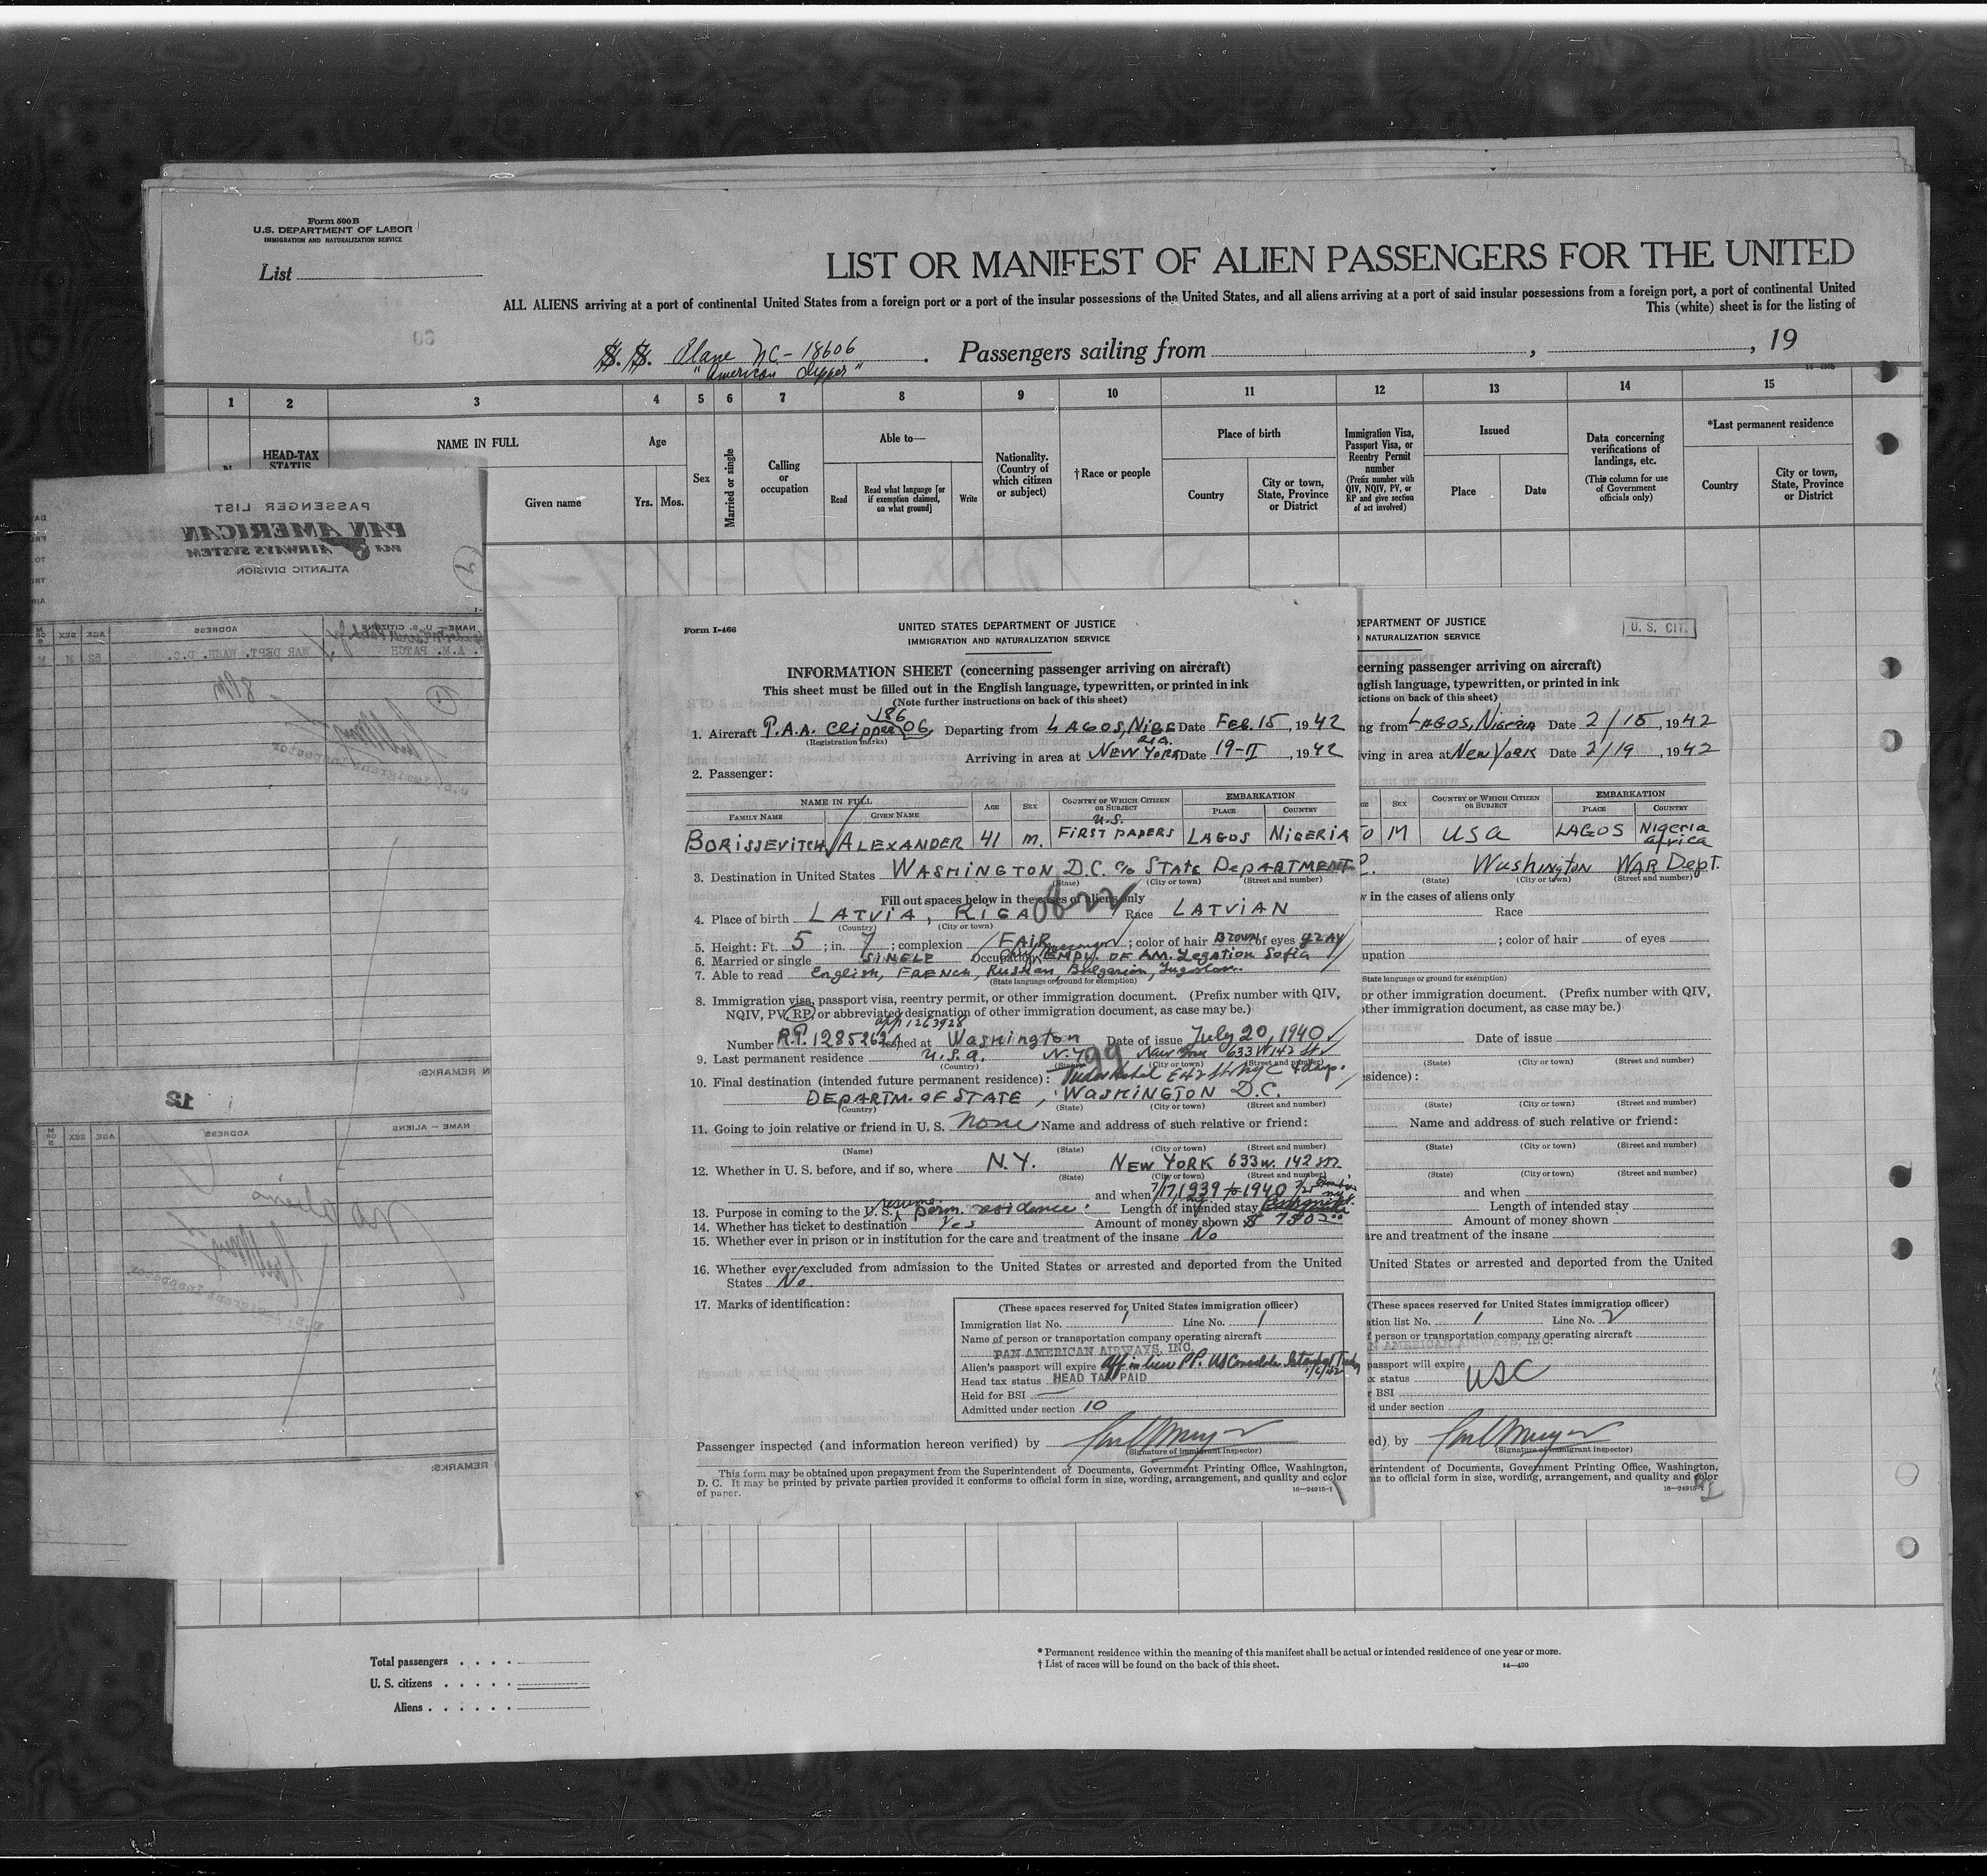 Form 500 B
U.S. DEPARTMENT OF LABOR
IMMIGRATION AND NATURALIZATION SERVICE
List
LIST OR MANIFEST OF ALIEN PASSENGERS FOR THE UNITED
ALL ALIENS arriving at a port of continental United States from a foreign port or a port of the insular possessions of the United States, and all aliens arriving at a port of said insular possessions from a foreign port, a port of continental United
This (white) sheet is for the listing of
S. S. Plane NC-18606 . Passengers sailing from , , 19
"American Clipper"
1 2 3 4 5 6 7 8 9 10 11 12 13 14 15
HEAD-TAX STATUS
NAME IN FULL
Given name
Age
Yrs. Mos.
Sex
Married or single
Calling or occupation
Able to—
Read
Read what language [or if exemption claimed, on what ground]
Write
Nationality. (Country of which citizen or subject)
†Race or people
Place of birth
Country
City or town, State, Province or District
Immigration Visa, Passport Visa, or Reentry Permit number
(Prefix number with QIV, NQIV, PV, or RP and give section of act involved)
Issued
Place
Date
Data concerning verifications of landings, etc.
(This column for use of Government officials only)
*Last permanent residence
Country
City or town, State, Province or District
PASSENGER LIST
PAN AMERICAN
PAA AIRWAYS SYSTEM
ATLANTIC DIVISION
NAME — U. S. CITIZENS ADDRESS AGE SEX
A.M. PATCH WAR DEPT. WASH. D.C. 52 M
8 PM
Immigrant Inspector
REMARKS:
12
NAME — ALIENS ADDRESS AGE SEX
No aliens
U.S. Immigrant Inspector
REMARKS:
Form I-466
UNITED STATES DEPARTMENT OF JUSTICE
IMMIGRATION AND NATURALIZATION SERVICE
INFORMATION SHEET (concerning passenger arriving on aircraft)
This sheet must be filled out in the English language, typewritten, or printed in ink
(Note further instructions on back of this sheet)
186
1. Aircraft P.A.A. Clipper 06 Departing from LAGOS, NIGE Date FEB. 15, 1942
(Registration marks) RIA.
Arriving in area at NEW YORK Date 19-II, 1942
2. Passenger:
NAME IN FULL AGE SEX COUNTRY OF WHICH CITIZEN OR SUBJECT EMBARKATION
FAMILY NAME GIVEN NAME PLACE COUNTRY
U.S.
BORISSEVITCH ALEXANDER 41 m. FIRST PAPERS LAGOS NIGERIA
3. Destination in United States WASHINGTON D.C. c/o STATE DEPARTMENT
(State) (City or town) (Street and number)
Fill out spaces below in the cases of aliens only
4. Place of birth LATVIA, RIGA Race LATVIAN
(Country) (City or town)
5. Height: Ft. 5; in. 7; complexion FAIR; color of hair BROWN of eyes GRAY
6. Married or single SINGLE Occupation EMPL. OF AM. Legation Sofia
7. Able to read English, FRENCH, Russian, Bulgarian, Jugoslav.
(State language or ground for exemption)
8. Immigration visa, passport visa, reentry permit, or other immigration document. (Prefix number with QIV,
NQIV, PV, RP, or abbreviated designation of other immigration document, as case may be.)
app 1263928
Number R.P. 1285262 Issued at Washington Date of issue July 20, 1940
9. Last permanent residence U.S.A. N.Y. New York 633 W 142 St
(Country) (State) (City or town) (Street and number)
99
10. Final destination (intended future permanent residence): Tudor Hotel E 42 St NYC
DEPARTM. OF STATE, WASHINGTON D.C.
(Country) (State) (City or town) (Street and number)
11. Going to join relative or friend in U. S. none Name and address of such relative or friend:
(Name) (State) (City or town) (Street and number)
12. Whether in U. S. before, and if so, where N.Y. NEW YORK 633 W. 142 Str.
(State) (City or town) (Street and number)
and when 7/17, 1939 to 1940
13. Purpose in coming to the U. S. resume perm. residence. Length of intended stay
14. Whether has ticket to destination Yes Amount of money shown $
15. Whether ever in prison or in institution for the care and treatment of the insane No
16. Whether ever excluded from admission to the United States or arrested and deported from the United
States No.
17. Marks of identification:
(These spaces reserved for United States immigration officer)
Immigration list No. 1 Line No. 1
Name of person or transportation company operating aircraft
PAN AMERICAN AIRWAYS, INC.
Alien's passport will expire Aff in lieu PP. US Consulate Istanbul Turkey
1/6/42
Head tax status HEAD TAX PAID
Held for BSI —
Admitted under section 10
Passenger inspected (and information hereon verified) by
(Signature of immigrant inspector)
This form may be obtained upon prepayment from the Superintendent of Documents, Government Printing Office, Washington,
D. C. It may be printed by private parties provided it conforms to official form in size, wording, arrangement, and quality and color
of paper. 16—24915-1
DEPARTMENT OF JUSTICE
NATURALIZATION SERVICE
U. S. CIT.
cerning passenger arriving on aircraft)
nglish language, typewritten, or printed in ink
ctions on back of this sheet)
ng from LAGOS, Nigeria Date 2/15, 1942
ving in area at New York Date 2/19, 1942
SEX COUNTRY OF WHICH CITIZEN OR SUBJECT EMBARKATION
PLACE COUNTRY
M USA LAGOS Nigeria Africa
Washington WAR Dept.
(State) (City or town) (Street and number)
w in the cases of aliens only
Race
; color of hair of eyes
upation
(State language or ground for exemption)
or other immigration document. (Prefix number with QIV,
other immigration document, as case may be.)
Date of issue
(State) (City or town) (Street and number)
esidence):
(State) (City or town) (Street and number)
Name and address of such relative or friend:
(State) (City or town) (Street and number)
(State) (City or town) (Street and number)
and when
Length of intended stay
Amount of money shown
are and treatment of the insane
United States or arrested and deported from the United
(These spaces reserved for United States immigration officer)
ation list No. 1 Line No. 2
f person or transportation company operating aircraft
N AMERICAN AIRWAYS, INC.
passport will expire
x status USC
r BSI
d under section
ed) by
(Signature of immigrant inspector)
erintendent of Documents, Government Printing Office, Washington,
ns to official form in size, wording, arrangement, and quality and color
16—24915-1
Total passengers
U. S. citizens
Aliens
* Permanent residence within the meaning of this manifest shall be actual or intended residence of one year or more.
† List of races will be found on the back of this sheet. 14—430